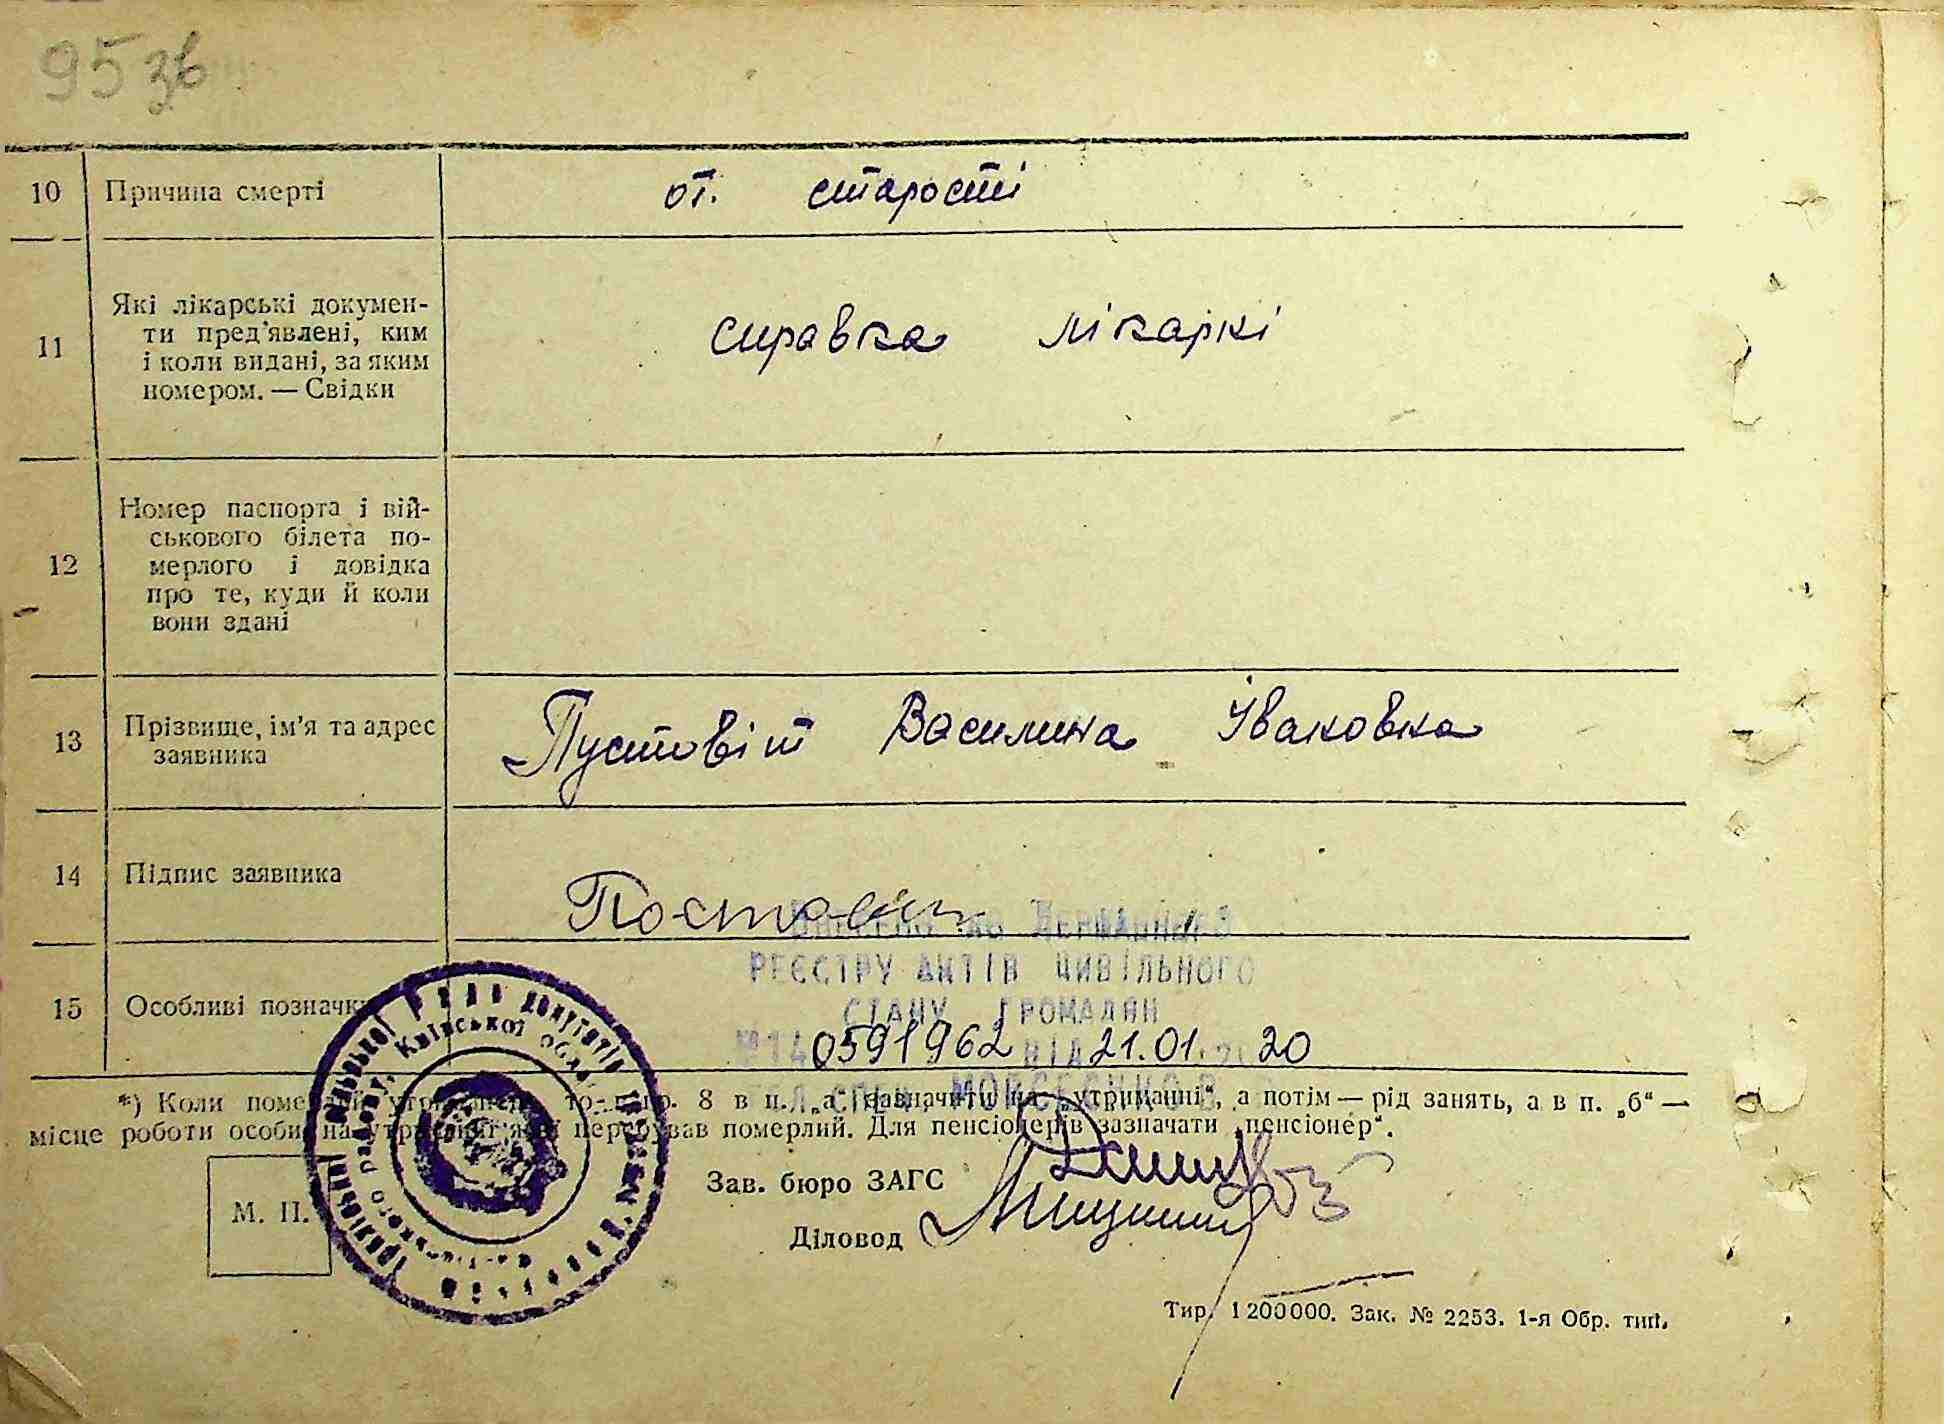 95 зв
10 Причина смерті от. старості
11 Які лікарські докумен-
ти пред'явлені, ким
і коли видані, за яким
номером. — Свідки
справка лікаркі
12 Номер паспорта і вій-
ськового білета по-
мерлого і довідка
про те, куди й коли
вони здані
13 Прізвище, ім'я та адрес
заявника
Пустовіт Василина Івановна
14 Підпис заявника
15 Особливі позначки
Державного
РЕЄСТРУ АКТІВ ЦИВІЛЬНОГО
СТАНУ ГРОМАДЯН
0591962 ВІД 21.01. 20
МОЙСЕЄНКО В
*) Коли померлий 8 в п. „а“ зазначити на „утриманні“, а потім — рід занять, а в п. „б“ —
місце роботи особи, на перебував померлий. Для пенсіонерів зазначати „пенсіонер“.
М. П.
Зав. бюро ЗАГС
Діловод
Київської
Тир. 1200000. Зак. № 2253. 1-я Обр. тип.